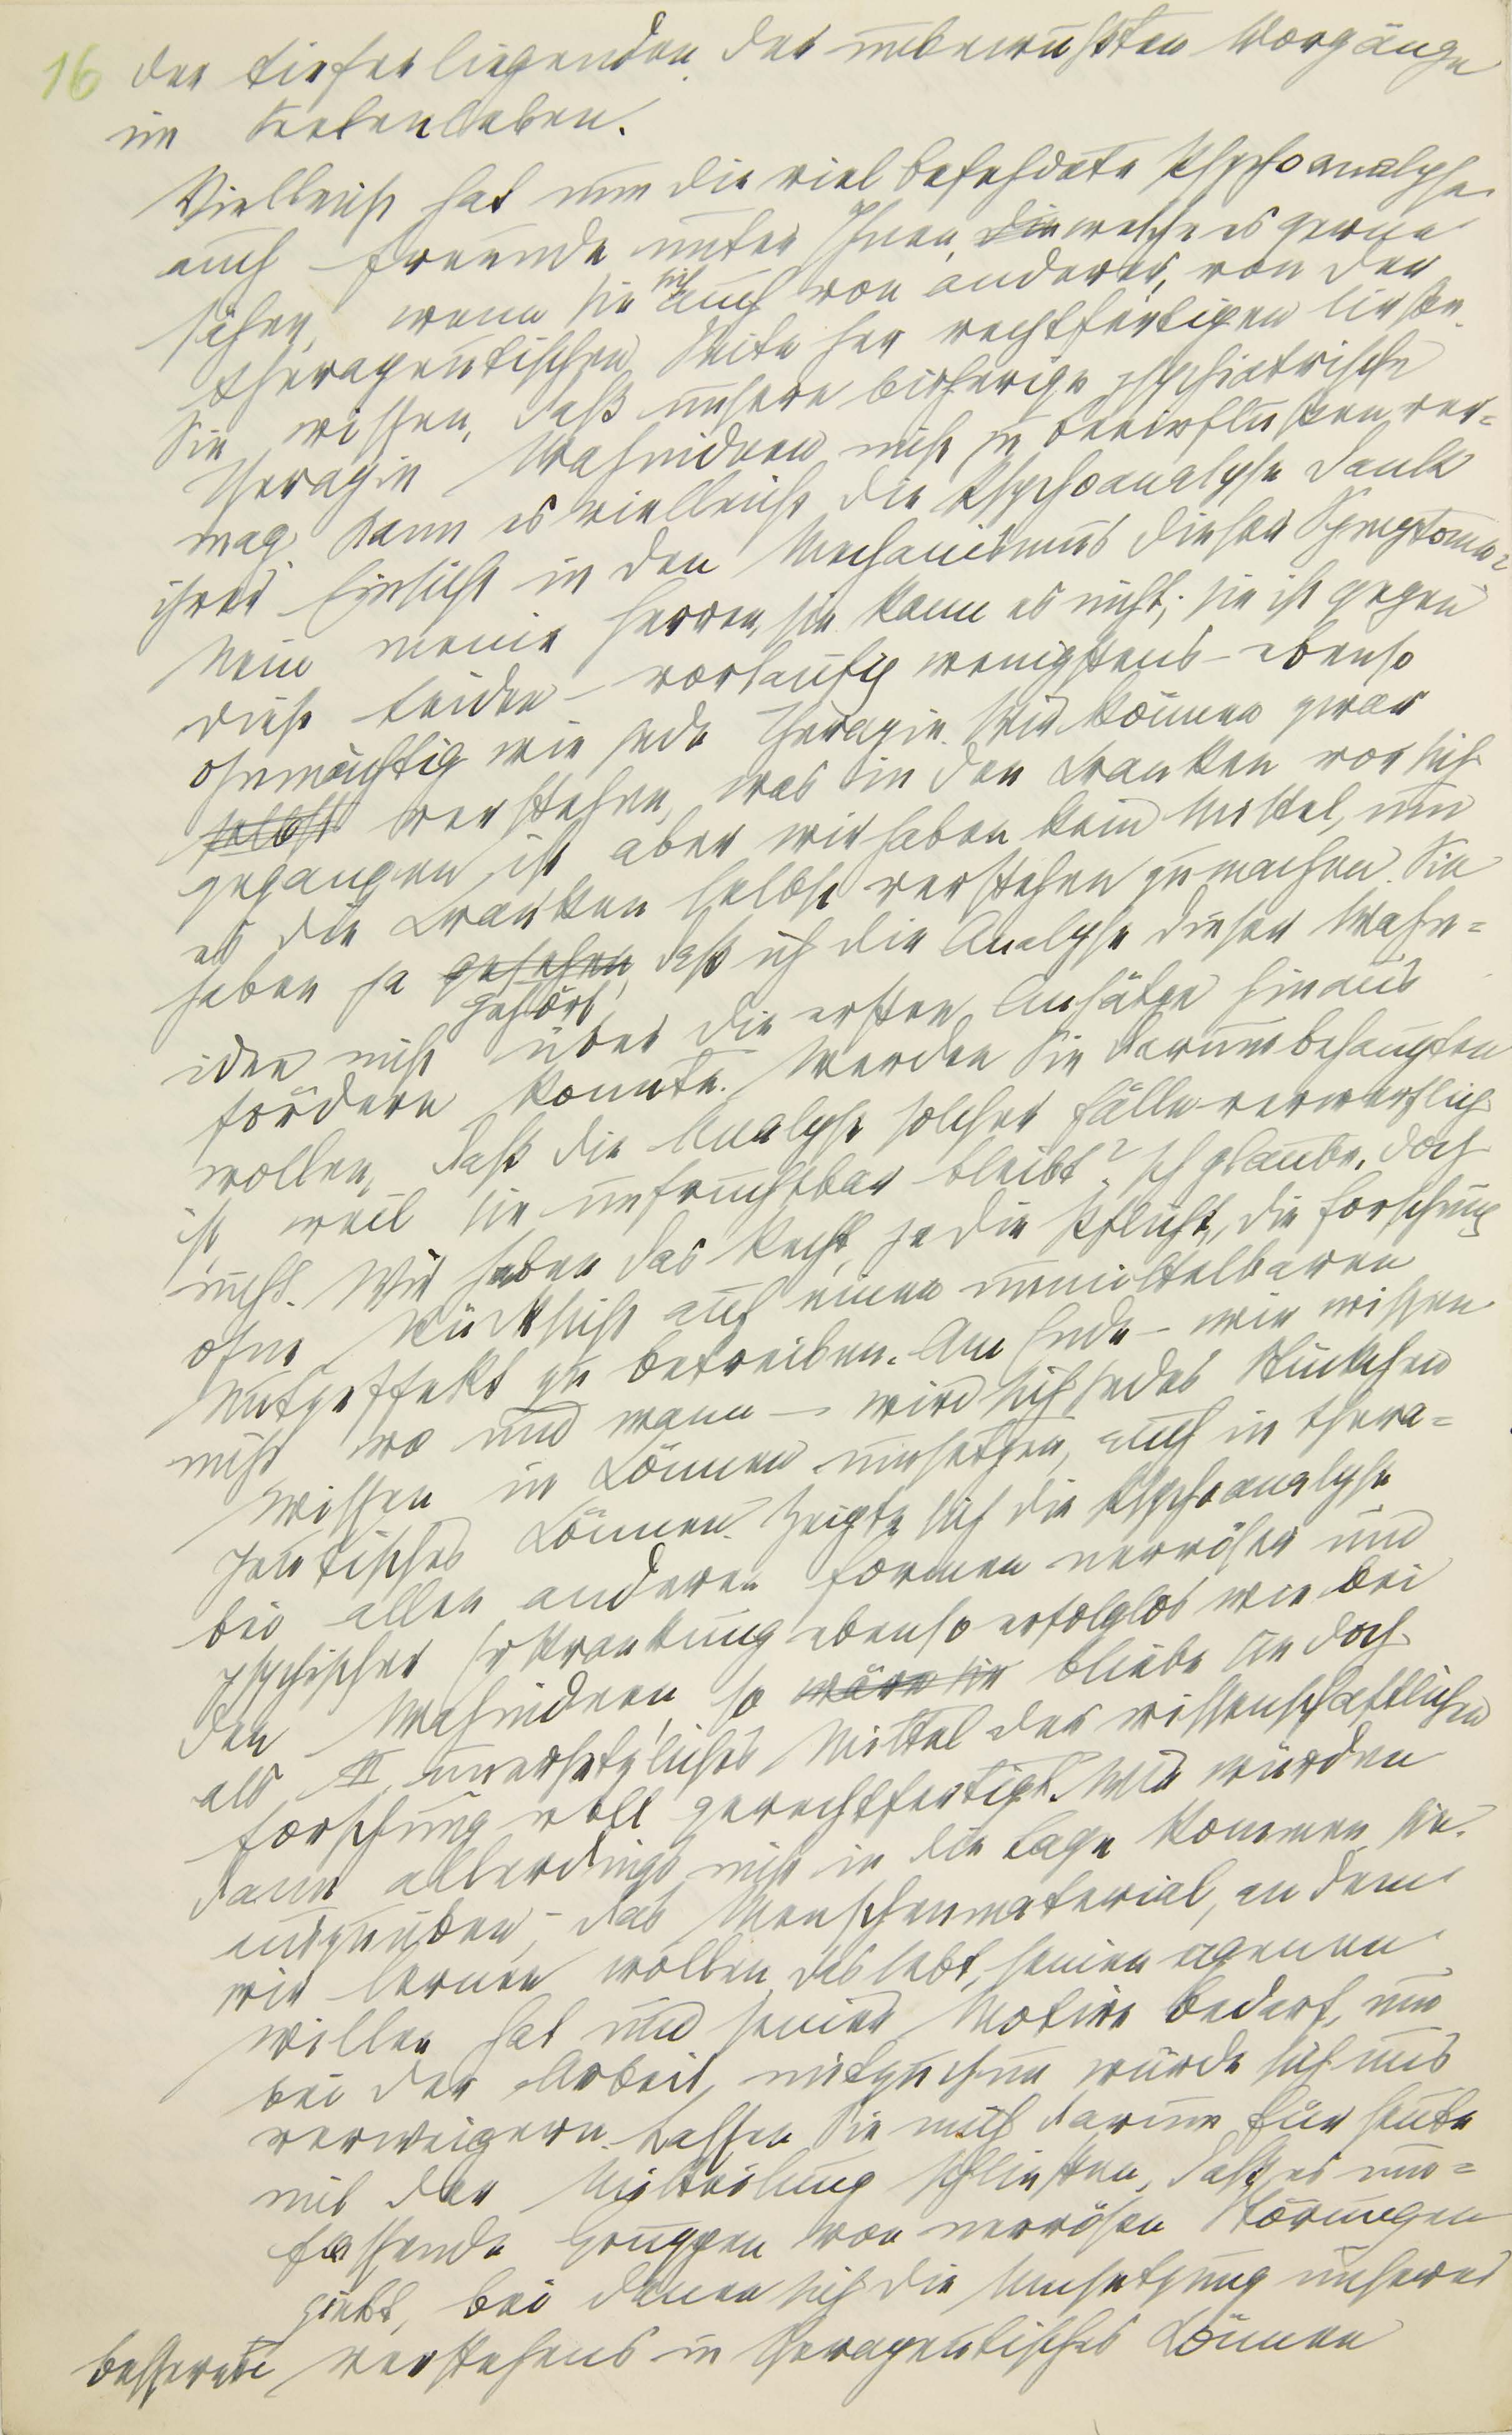 16 der tieferliegenden, der unbewußten Vorgänge
im Seelenleben.
Vielleicht hat nun die viel befehdete Psychoanalyse
auch Freunde unter Ihnen, die welche es gerne
sähen, wenn sie sich auch von anderer, von der
therapeutischen Seite her rechtfertigen ließe.
Sie wissen, daß unsere bisherige psychiatrische
Therapie Wahnideen nicht zu beeinflussen ver=
mag. Kann es vielleicht die Psychoanalyse dank
ihrer Einsicht in den Mechanismus dieser Symptome?
Nein meine Herren, sie kann es nicht; sie ist gegen
diese Leiden – vorläufig wenigstens – ebenso
ohnmächtig wie jede Therapie. Wir können zwar
selbst verstehen, was in den Kranken vor sich
gegangen ist, aber wir haben kein Mittel, um
es die Kranken selbst verstehen zu machen. Sie
haben ja gesehen, daß ich die Analyse dieser Wahn=
gehört,
idee nicht über die ersten Ansätze hinaus
fördern konnte. Werden Sie darum behaupten
wollen, daß die Analyse solcher Fälle verwerflich
ist, weil sie unfruchtbar bleibt? Ich glaube, doch
nicht. Wir haben das Recht, ja die Pflicht, die Forschung
ohne Rücksicht auf einen unmittelbaren
Nutzeffekt zu betreiben. Am Ende – wir wissen
nicht wo und wann – wird sich jedes Stückchen
Wissen in Können umsetzen, auch in thera=
peutisches Können. Zeigte sich die Psychoanalyse
bei allen anderen Formen nervöser und
psychischer Erkrankung ebenso erfolglos wie bei
den Wahnideen, so wäre sie bliebe sie doch
als unersetzliches Mittel der wissenschaftlichen
Forschung voll gerechtfertigt. Wir würden
dann allerdings nicht in die Lage kommen sie
auszuüben; das Menschenmaterial, an dem
wir lernen wollen, das lebt, seinen eigenen
Willen hat und seiner Motive bedarf, um
bei der Arbeit mitzutun, würde sich uns
verweigern. Lassen Sie mich darum für heute
mit der Mitteilung schließen, daß es um=
fassende Gruppen von nervösen Störungen
giebt, bei denen sich die Umsetzung unseres
besseren Verstehens in therapeutisches Können